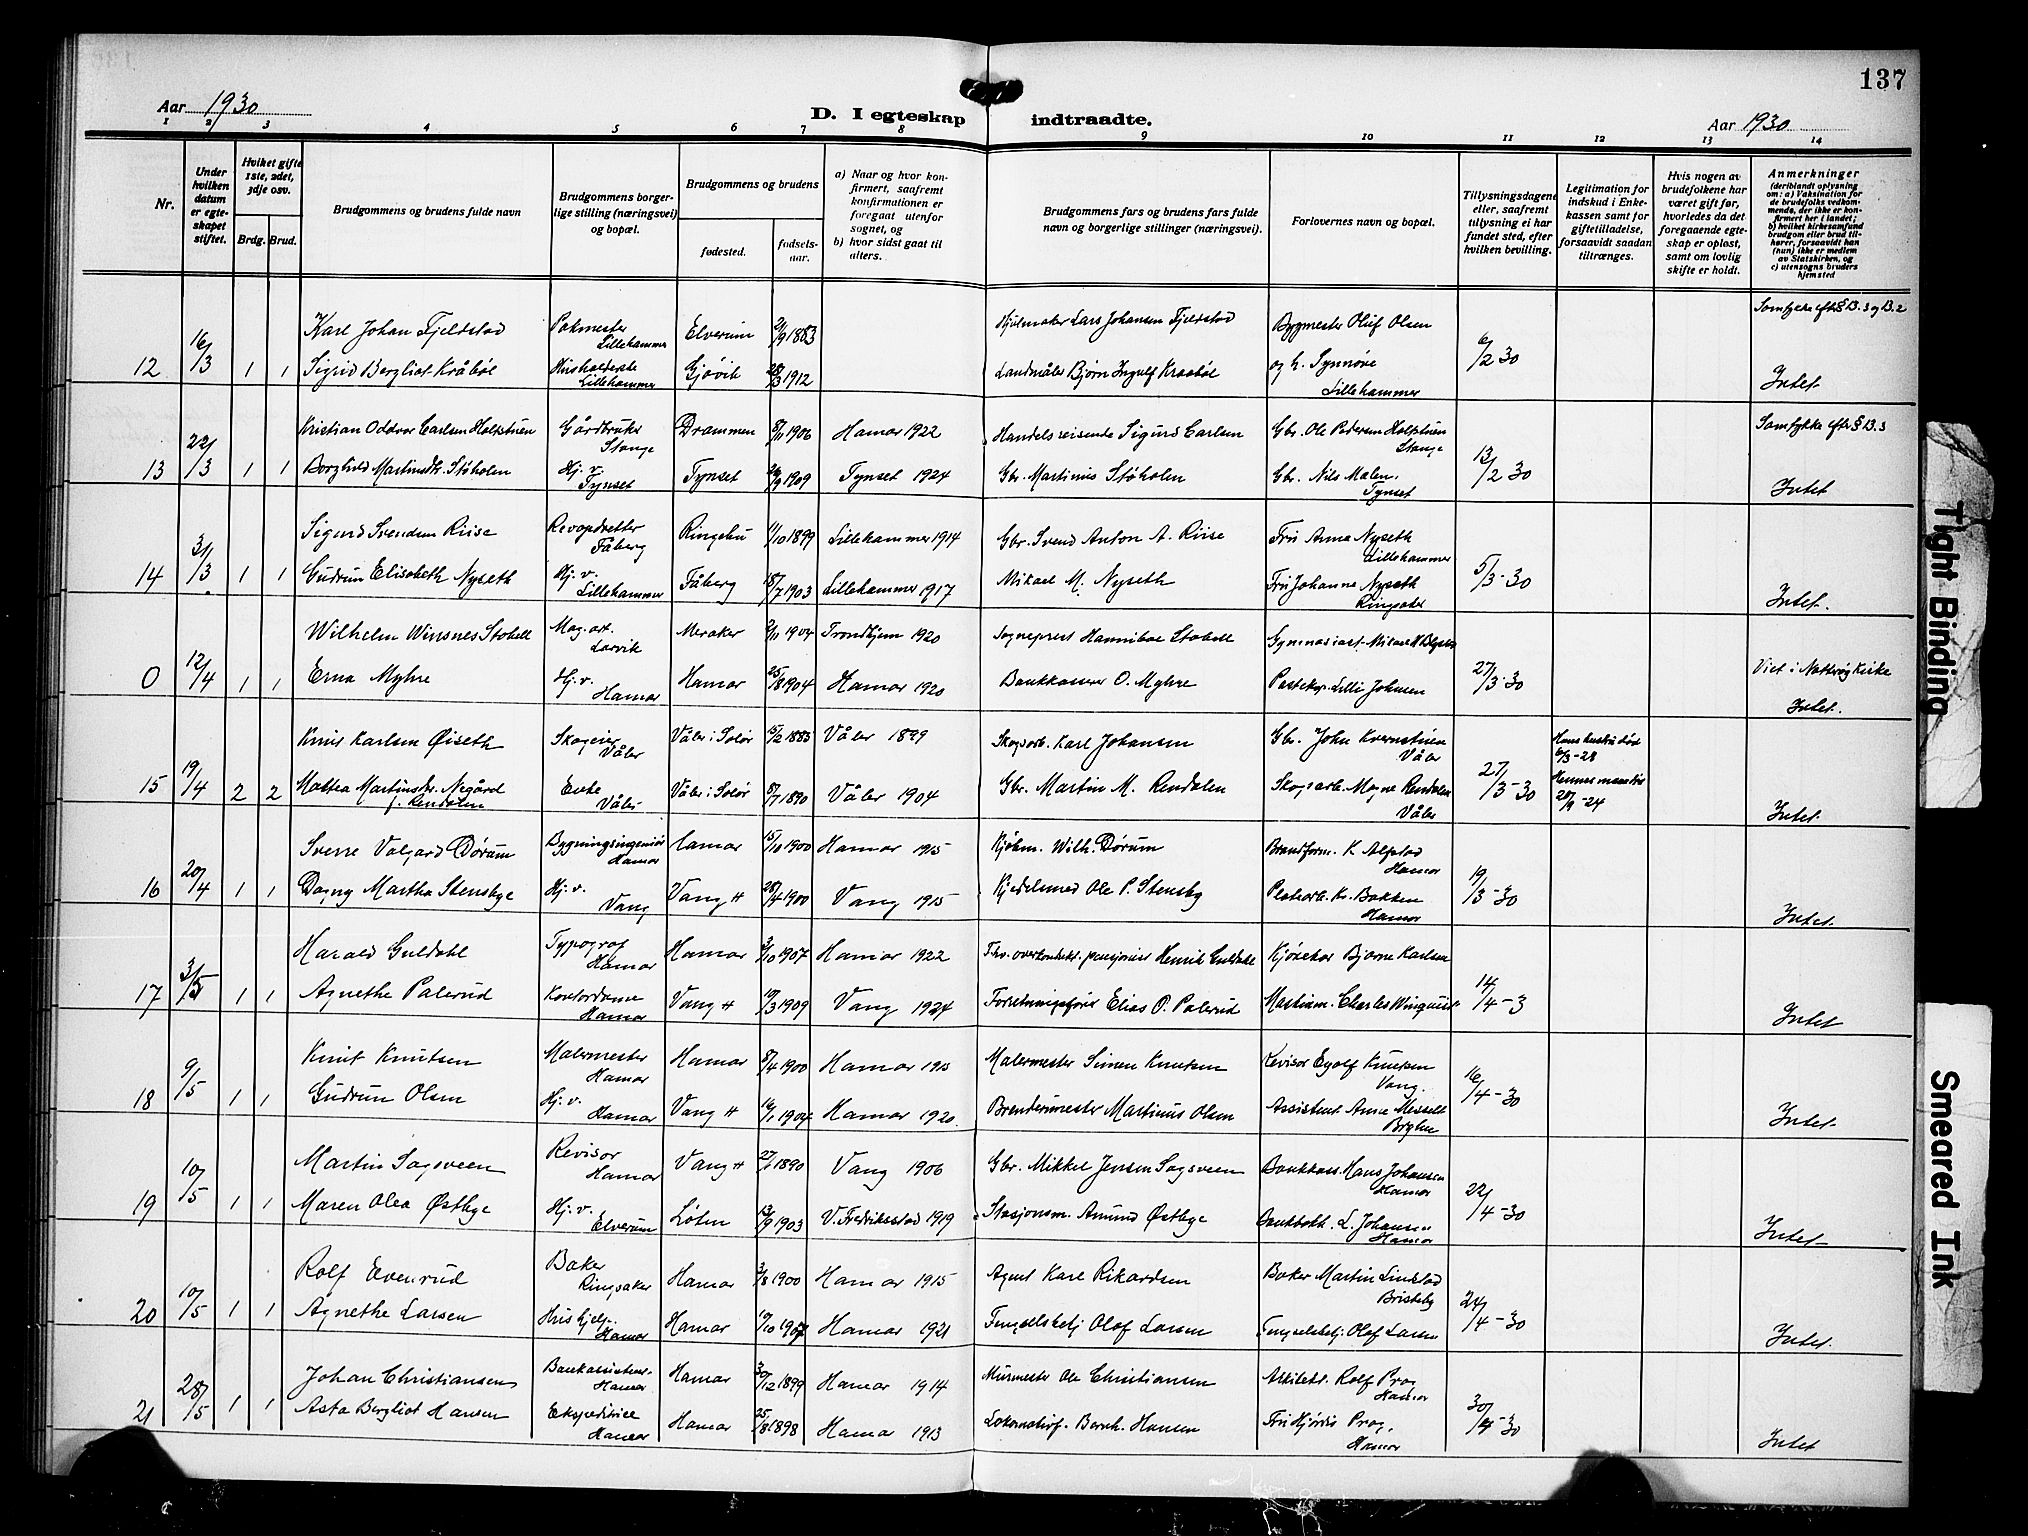 137
Aar 1930
D. I egteskap indtraadte.
Aar 1930
1 2 3 4 5 6 7 8 9 10 11 12 13 14
Nr.
Under hvilken datum er egte-skapet stiftet.
Hvilket gifte 1ste, 2det, 3dje osv.
Brdg. Brud.
Brudgommens og brudens fulde navn
Brudgommens borger-lige stilling (næringsvei) og bopæl.
Brudgommens og brudens
fødested.
fødsels-aar.
a) Naar og hvor kon-firmert, saafremt konfirmationen er foregaat utenfor sognet, og
b) hvor sidst gaat til alters.
Brudgommens fars og brudens fars fulde navn og borgerlige stillinger (næringsvei).
Forlovernes navn og bopæl.
Tillysningsdagene eller, saafremt tillysning ei har fundet sted, efter hvilken bevilling.
Legitimation for indskud i Enke-kassen samt for giftetilladelse, forsaavidt saadan tiltrænges.
Hvis nogen av brudefolkene har været gift før, hvorledes da det foregaaende egte-skap er opløst, samt om lovlig skifte er holdt.
Anmerkninger
(deriblandt oplysning om: a) Vaksination for de brudefolks vedkom-mende, der ikke er kon-firmert her i landet; b) hvilket kirkesamfund brudgom eller brud til-hører, forsaavidt han (hun) ikke er medlem av Statskirken, og c) utensogns bruders hjemsted
12 16/3 1 1
Karl Johan Fjeldstad Pakmester Lillehammer Elverum 21/9 1883 Hjulmaker Lars Johansen Fjeldstad Bygmester Oluf Olsen 6/2 30 Samtykke efter § B.3 og B.2
Sigrid Bergliot Kråbøl Lillehammer Gjøvik 28/3 1912 Landmåler Bjørn Ingulf Kraabøl og h. Synnøve Lillehammer Intet.
13 22/3 1 1
Kristian Oddvar Carlsen Holtstuen Gårdbruker Stange Drammen 8/11 1906 Hamar 1922 Handelsreisende Sigurd Carlsen Gbr. Ole Pedersen Holtstuen Stange 13/2 30 Samtykke efter § B.3
Borghild Martinusdtr. Støholen Hj. v. Tynset Tynset 26/9 1909 Tynset 1924 Gbr. Martinus Støholen Gbr. Nils Malen. Tynset Intet
14 31/3 1 1
Sigurd Svendsen Riise Revopdretter Fåberg Ringebu 1/10 1899 Lillehammer 1914 Gbr. Svend Anton A. Riise Fru Anna Nyseth Lillehammer 5/3-30
Gudrun Elisabeth Nyseth Hj. v. Lillehammer Fåberg 18/7 1903 Lillehammer 1917 Mikael M. Nyseth Fru Johanne Nyseth Ringsaker Intet.
0 12/4 1 1
Wilhelm Winsnes Stobell Mag. art. Larvik Meraker 2/11 1904 Trondhjem 1920 Sogneprest Hannibal Stobell Gymnasiast 27/3-30
Erna Myhre Hj. v. Hamar Hamar 25/8 1904 Hamar 1920 Bankkasserer O. Myhre Posteksp. Lilli Johnsen Viet i Kirke Intet.
15 19/4 2 2
Knut Karlsen Øiseth Skogeier Våler Våler i Solør 15/2 1883 Våler 1899 Skogsarb. Karl Johansen Gbr. John Kvernstuen Våler 27/3-30 Hans hustru død 6/3-28
Mattea Martinsdtr. Negård f. Rendalen Enke Våler Våler i Solør 8/7 1890 Våler 1904 Gbr. Martin M. Rendalen Skogsarb. Magne Rendalen Våler Hennes mann død 28/9-24 Intet.
16 20/4 1 1
Sverre Valgard Dørum Bygningsingeniør Hamar Hamar 15/10 1900 Hamar 1915 Kjøbm. Wilh. Dørum Brandform. K. Alfstad Hamar 19/3-30
Dagny Martha Stensbye Hj. v. Vang Vang H 28/4 1900 Vang 1915 Kjedelsmed Ole P. Stensby Platearb. Kr. Bakken Hamar Intet.
17 3/5 1 1
Harald Guldahl Typograf Hamar Hamar 3/10 1907 Hamar 1922 Fhv. overkondukt. pensjonist Henrik Guldahl Kjørekar Bjarne Karlsen 14/4-3
Agnethe Palerud Kontordame Hamar Vang H 19/3 1909 Vang 1924 Forretningsfører Elias O. Palerud Maskinm. Charles Winquist Intet
18 9/5 1 1
Knut Knutsen Malermester Hamar Hamar 8/4 1900 Hamar 1915 Malermester Simen Knutsen Revisor Egolf Knutsen Vang. 16/4-30
Gudrun Olsen Hj. v. Hamar Vang H 16/1 1904 Hamar 1920. Brenderimester Martinus Olsen Assistent Anna Messelt Intet.
19 10/5 1 1
Martin Sagsveen Revisor Hamar Vang H 27/1 1890 Vang 1906 Gbr. Mikkel Jensen Sagsveen Bankkass. Hans Johansen Hamar 22/4-30
Maren Olea Østbye Hj. v. Elverum Løten 13/9 1903 V. Fredriksstad 1919 Stasjonsm. Amund Østbye Bankbokh. L. Johansen Hamar Intet
20 10/5 1 1
Rolf Evenrud Baker Ringsaker Hamar 3/8 1900 Hamar 1915 Agent Karl Rikardsen Baker Martin Linstad 24/4-30
Agnethe Larsen Hushjelp. Hamar Hamar 19/10 1907 Hamar 1921 Fengselsbetj Olaf Larsen Fengselsbetj. Olaf Larsen Intet.
21 28/5 1 1
Johan Christiansen Bankassistent Hamar Hamar 30/12 1899 Hamar 1914 Murmester Ole Christiansen Arkitekt. Rolf Prag Hamar 30/4-30
Asta Bergliot Hansen Ekspeditrice Hamar Hamar 25/8 1898 Hamar 1913 Lokomotivf. Bernh. Hansen Fru Hjørdis Prag, Hamar Intet
Tight Binding
Smeared Ink